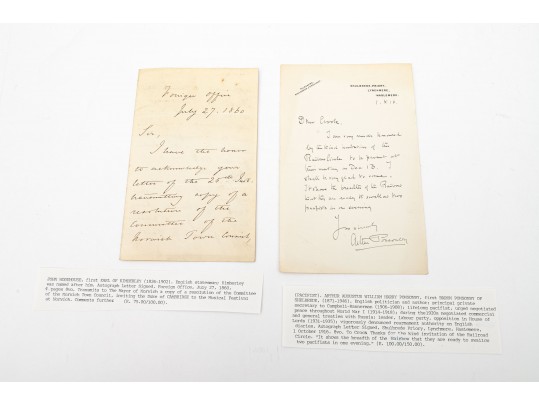 Foreign Office
July 27. 1860
Sir,
I have the honor
to acknowledge your
letter of the 25th Inst.
transmitting copy of a
resolution of the
Committee of the
Norwich Town Council
SHULBREDE PRIORY,
LYNCHMERE,
HASLEMERE.
Dear Crook
I am very much honoured
by the kind invitation of the
to be present at
their meeting on Dec 13. I
shall be very glad to come.
It shows the breadth of the
that they are ready to swallow two
pacifists in one evening
Yours sincerely
Arthur Ponsonby
JOHN WODEHOUSE, first EARL OF KIMBERLEY (1826-1902). English statesman; Kimberley
was named after him. Autograph Letter Signed. Foreign Office, July 27, 1860.
8vo. Transmits to The Mayor of Norwich a copy of a resolution of the Committee
of the Norwich Town Council, inviting the Duke of CAMBRIDGE to the Musical Festival
at Norwich. Comments further (E. 75.00/100.00).
(PACIFIST). ARTHUR AUGUSTUS WILLIAM HARRY PONSONBY, first BARON PONSONBY OF
SHULBREDE, (1871-1946). English politician and author; principal private
secretary to Campbell-Bannerman (1906-1908). Lifelong pacifist, urged negotiated
peace throughout World War I (1914-1918); during the1920s negotiated commercial
and general treaties with Russia; leader, Labour party, opposition in House of
Lords (1931-1935); vigorously denounced rearmament authority on English
diaries. Autograph Letter Signed. Shulbrede Priory, Lynchmere, Haslemere,
1 October 1916. 8vo. To Crook Thanks for the kind invitation of the Railroad
Circle. "It shows the breadth of the Rainbow that they are ready to swallow
two pacifists in one evening." (E. 100.00/150.00).